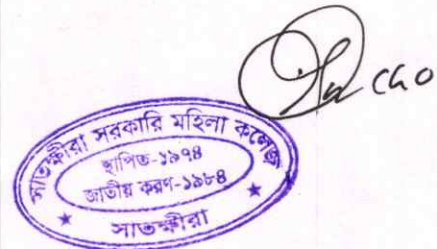 সাতক্ষীরা সরকারি মহিলা কলেজ
স্থাপিত-১৯৭৪
জাতীয় করণ-১৯৮৪
★ সাতক্ষীরা ★